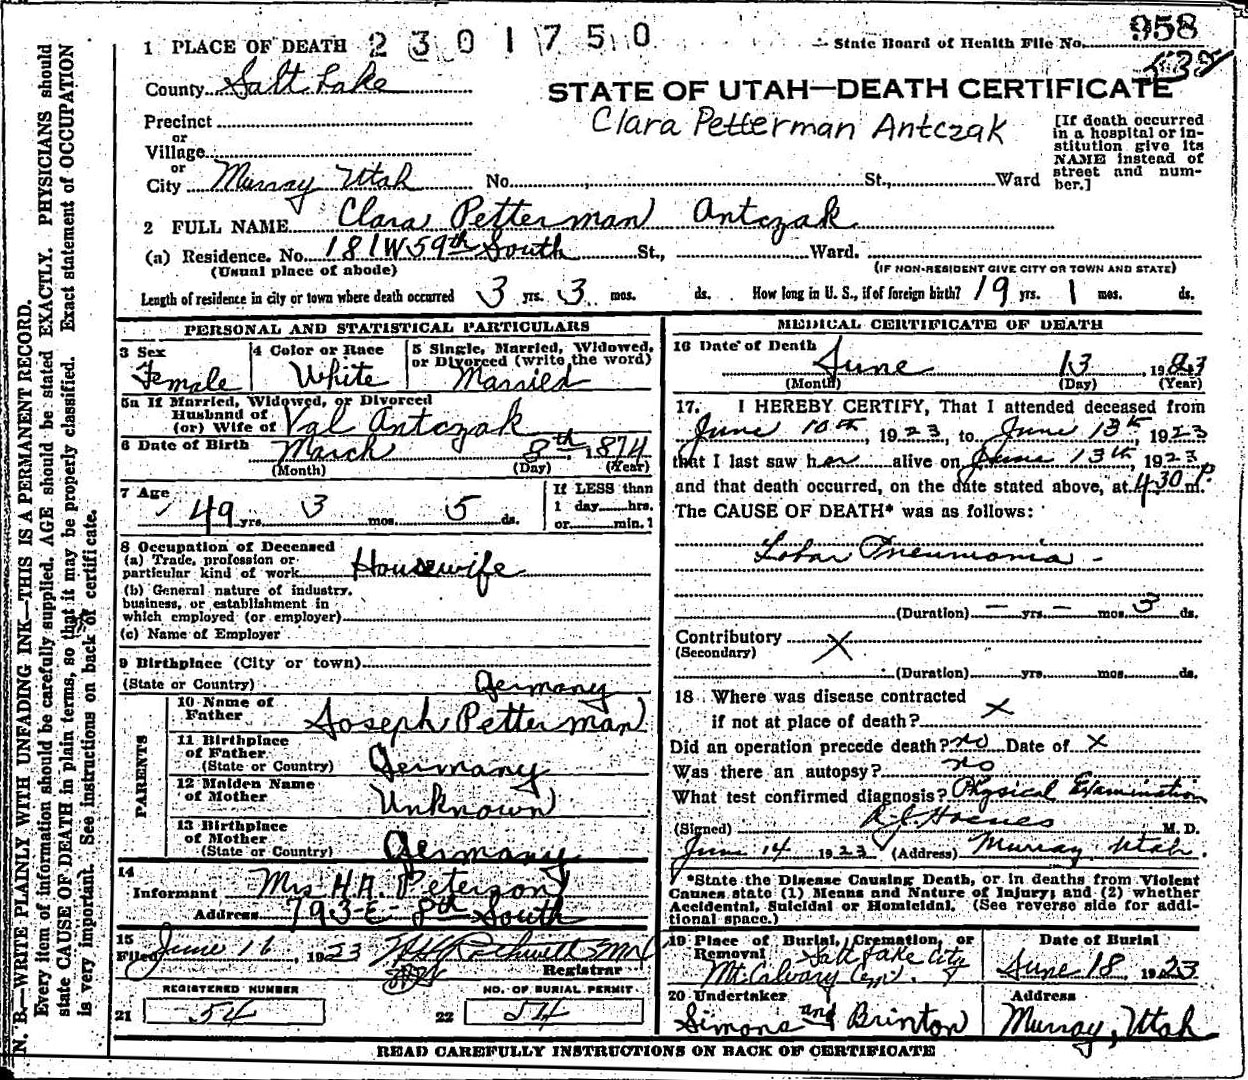 958
1 PLACE OF DEATH 2301750 State Board of Health File No.
County Salt Lake
STATE OF UTAH—DEATH CERTIFICATE
Clara Petterman Antczak
[If death occurred in a hospital or institution give its NAME instead of street and number.]
Precinct
or
Village
or
City Murray Utah No. St., Ward
2 FULL NAME Clara Petterman Antczak
(a) Residence. No. 181 W 59th South St., Ward.
(Usual place of abode) (IF NON-RESIDENT GIVE CITY OR TOWN AND STATE)
Length of residence in city or town where death occurred 3 yrs. 3 mos. ds. How long in U. S., if of foreign birth? 19 yrs. 1 mos. ds.
PERSONAL AND STATISTICAL PARTICULARS
3 Sex 4 Color or Race 5 Single, Married, Widowed, or Divorced (write the word)
Female White Married
5a If Married, Widowed, or Divorced
Husband of
(or) Wife of Val Antczak
6 Date of Birth March 8th, 1874
(Month) (Day) (Year)
7 Age 49 yrs. 3 mos. 5 ds.
If LESS than
1 day hrs.
or min.?
8 Occupation of Deceased
(a) Trade, profession or
particular kind of work Housewife
(b) General nature of industry,
business, or establishment in
which employed (or employer)
(c) Name of Employer
9 Birthplace (City or town)
(State or Country) Germany
PARENTS
10 Name of
Father Joseph Petterman
11 Birthplace
of Father
(State or Country) Germany
12 Maiden Name
of Mother Unknown
13 Birthplace
of Mother
(State or Country) Germany
14
Informant Mrs H.A. Peterson
Address 793-E 8th South
15
Filed June 16, 1923
Registrar
REGISTERED NUMBER NO. OF BURIAL PERMIT
21 54 22 54
MEDICAL CERTIFICATE OF DEATH
16 Date of Death June 13, 1923
(Month) (Day) (Year)
17. I HEREBY CERTIFY, That I attended deceased from
June 10th, 1923, to June 13th, 1923
that I last saw her alive on June 13th, 1923
and that death occurred, on the date stated above, at 4:30 P. m.
The CAUSE OF DEATH* was as follows:
Lobar Pneumonia -
(Duration) — yrs — mos 3 ds.
Contributory X
(Secondary)
(Duration) yrs. mos. ds.
18 Where was disease contracted
if not at place of death? X
Did an operation precede death? no Date of X
Was there an autopsy? no
What test confirmed diagnosis? Physical Examination
(Signed) M. D.
June 14 1923 (Address) Murray Utah.
*State the Disease Causing Death, or in deaths from Violent
Causes state (1) Means and Nature of Injury; and (2) whether
Accidental, Suicidal or Homicidal. (See reverse side for additional space.)
19 Place of Burial, Cremation, or
Removal Salt Lake City
Mt. Calvary Cem.
Date of Burial
June 18, 1923
20 Undertaker Address
Simons and Brinton Murray, Utah
READ CAREFULLY INSTRUCTIONS ON BACK OF CERTIFICATE
N. B.—WRITE PLAINLY WITH UNFADING INK—THIS IS A PERMANENT RECORD.
Every item of information should be carefully supplied. AGE should be stated EXACTLY. PHYSICIANS should
state CAUSE OF DEATH in plain terms, so that it may be properly classified. Exact statement of OCCUPATION
is very important. See instructions on back of certificate.